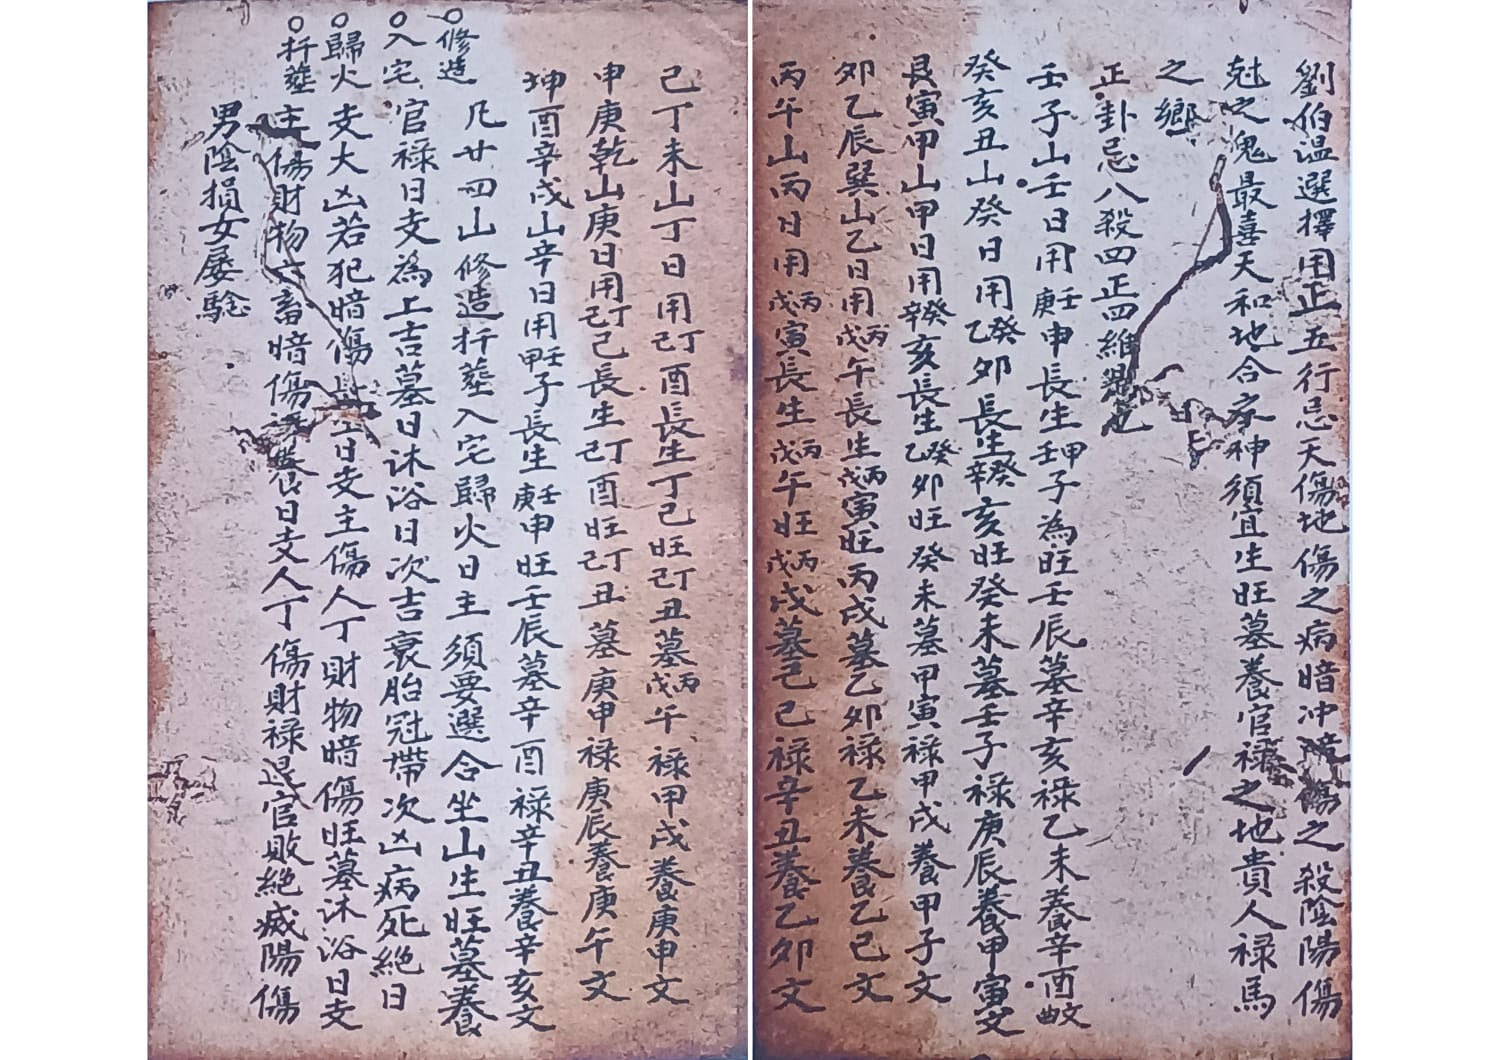 劉伯温選擇用正五行忌天傷地傷之病暗冲暗傷之殺陰陽傷
尅之鬼最喜天和地合家神須宜生旺墓養官禄之地貴人禄馬
之鄉
正卦忌八殺四正四維
壬子山壬日用壬庚申長生甲壬子為旺壬辰墓辛亥禄乙未養辛酉文曲
癸亥丑山癸日用癸乙卯長生癸辛亥旺癸未墓壬子禄庚辰養甲寅文
艮寅甲山甲日用癸辛亥長生癸乙卯旺癸未墓甲寅禄甲戌養甲子文
卯乙辰巽山乙日用丙戊午長生丙戊寅旺丙戌墓乙卯禄乙未養乙巳文
丙午山丙日用丙戊寅長生丙戊午旺丙戊戌墓己巳禄辛丑養乙卯文
己丁未山丁日用丁己酉長生丁己旺丁己丑墓丙戊午禄甲戌養庚申文
申庚乾山庚日用丁己己長生丁己酉旺丁己丑墓庚申禄庚辰養庚午文
坤酉辛戌山辛日用壬甲子長生壬庚申旺壬辰墓辛酉禄辛丑養辛亥文
○修造 凡廿四山修造扦塟入宅歸火日主須要選合坐山生旺墓養
○入宅 官禄日支為上吉墓日沐浴日次吉衰胎冠帶次凶病死絶日
○歸火 支大凶若犯暗傷日支主傷人丁財物暗傷旺墓沐浴日支
○扦塟 主傷財物六畜暗傷養日支人丁傷財禄退官敗絶滅陽傷
男陰損女屡騐